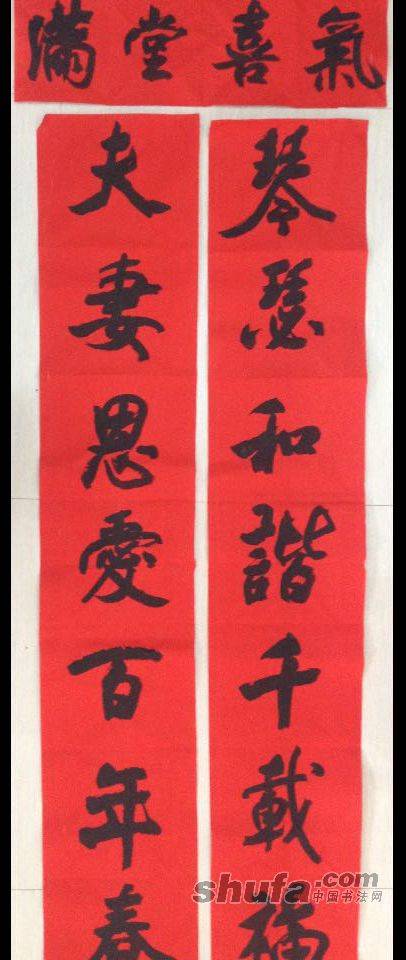 滿堂喜氣
琴瑟和諧千載福
夫妻恩愛百年春
shufa.com
中国书法网